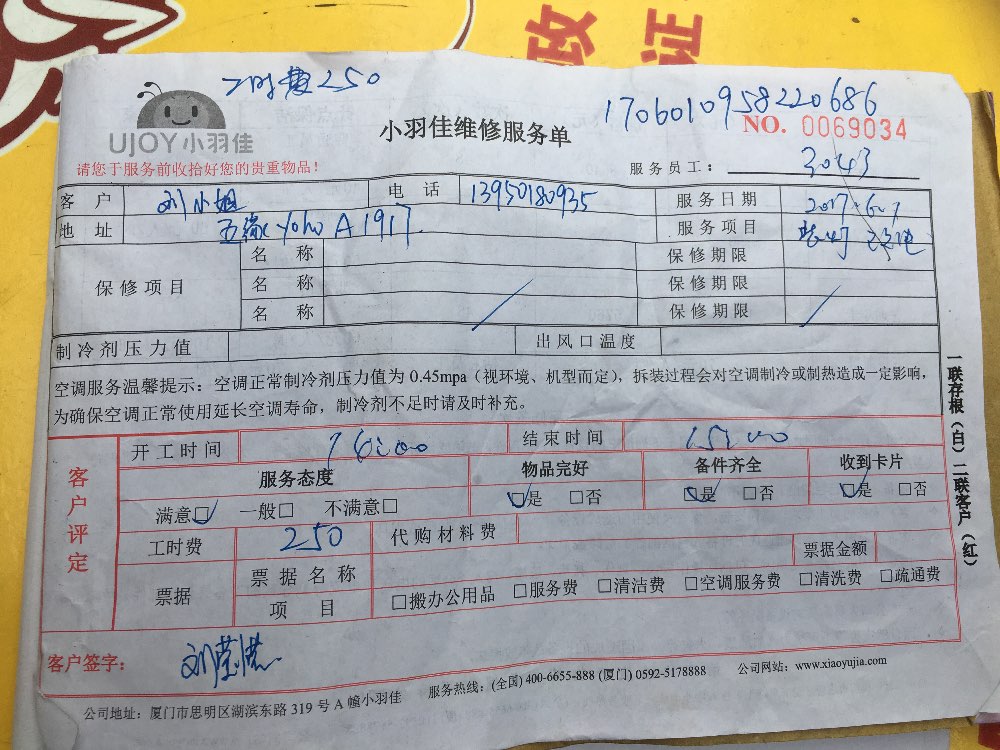 收 证
工时费250
1706010958220686
UJOY小羽佳
小羽佳维修服务单
NO. 0069034
请您于服务前收拾好您的贵重物品！
服务员工： 3043
客 户 刘小姐 电 话 13950180935 服务日期
地 址 五缘 yoho A1917 服务项目
保修项目 名 称 保修期限
名 称 保修期限
名 称 保修期限
制冷剂压力值 出风口温度
空调服务温馨提示：空调正常制冷剂压力值为 0.45mpa（视环境、机型而定），拆装过程会对空调制冷或制热造成一定影响，
为确保空调正常使用延长空调寿命，制冷剂不足时请及时补充。
一联存根（白）二联客户（红）
客户评定
开工时间 结束时间
服务态度 物品完好 备件齐全 收到卡片
满意□ 一般□ 不满意□ □是 □否 □是 □否 □是 □否
工时费 250 代购材料费
票据金额
票据 票据名称
项 目 □搬办公用品 □服务费 □清洁费 □空调服务费 □清洗费 □疏通费
客户签字：
公司地址：厦门市思明区湖滨东路 319 号 A 幢小羽佳 服务热线：(全国) 400-6655-888 (厦门) 0592-5178888 公司网站：www.xiaoyujia.com